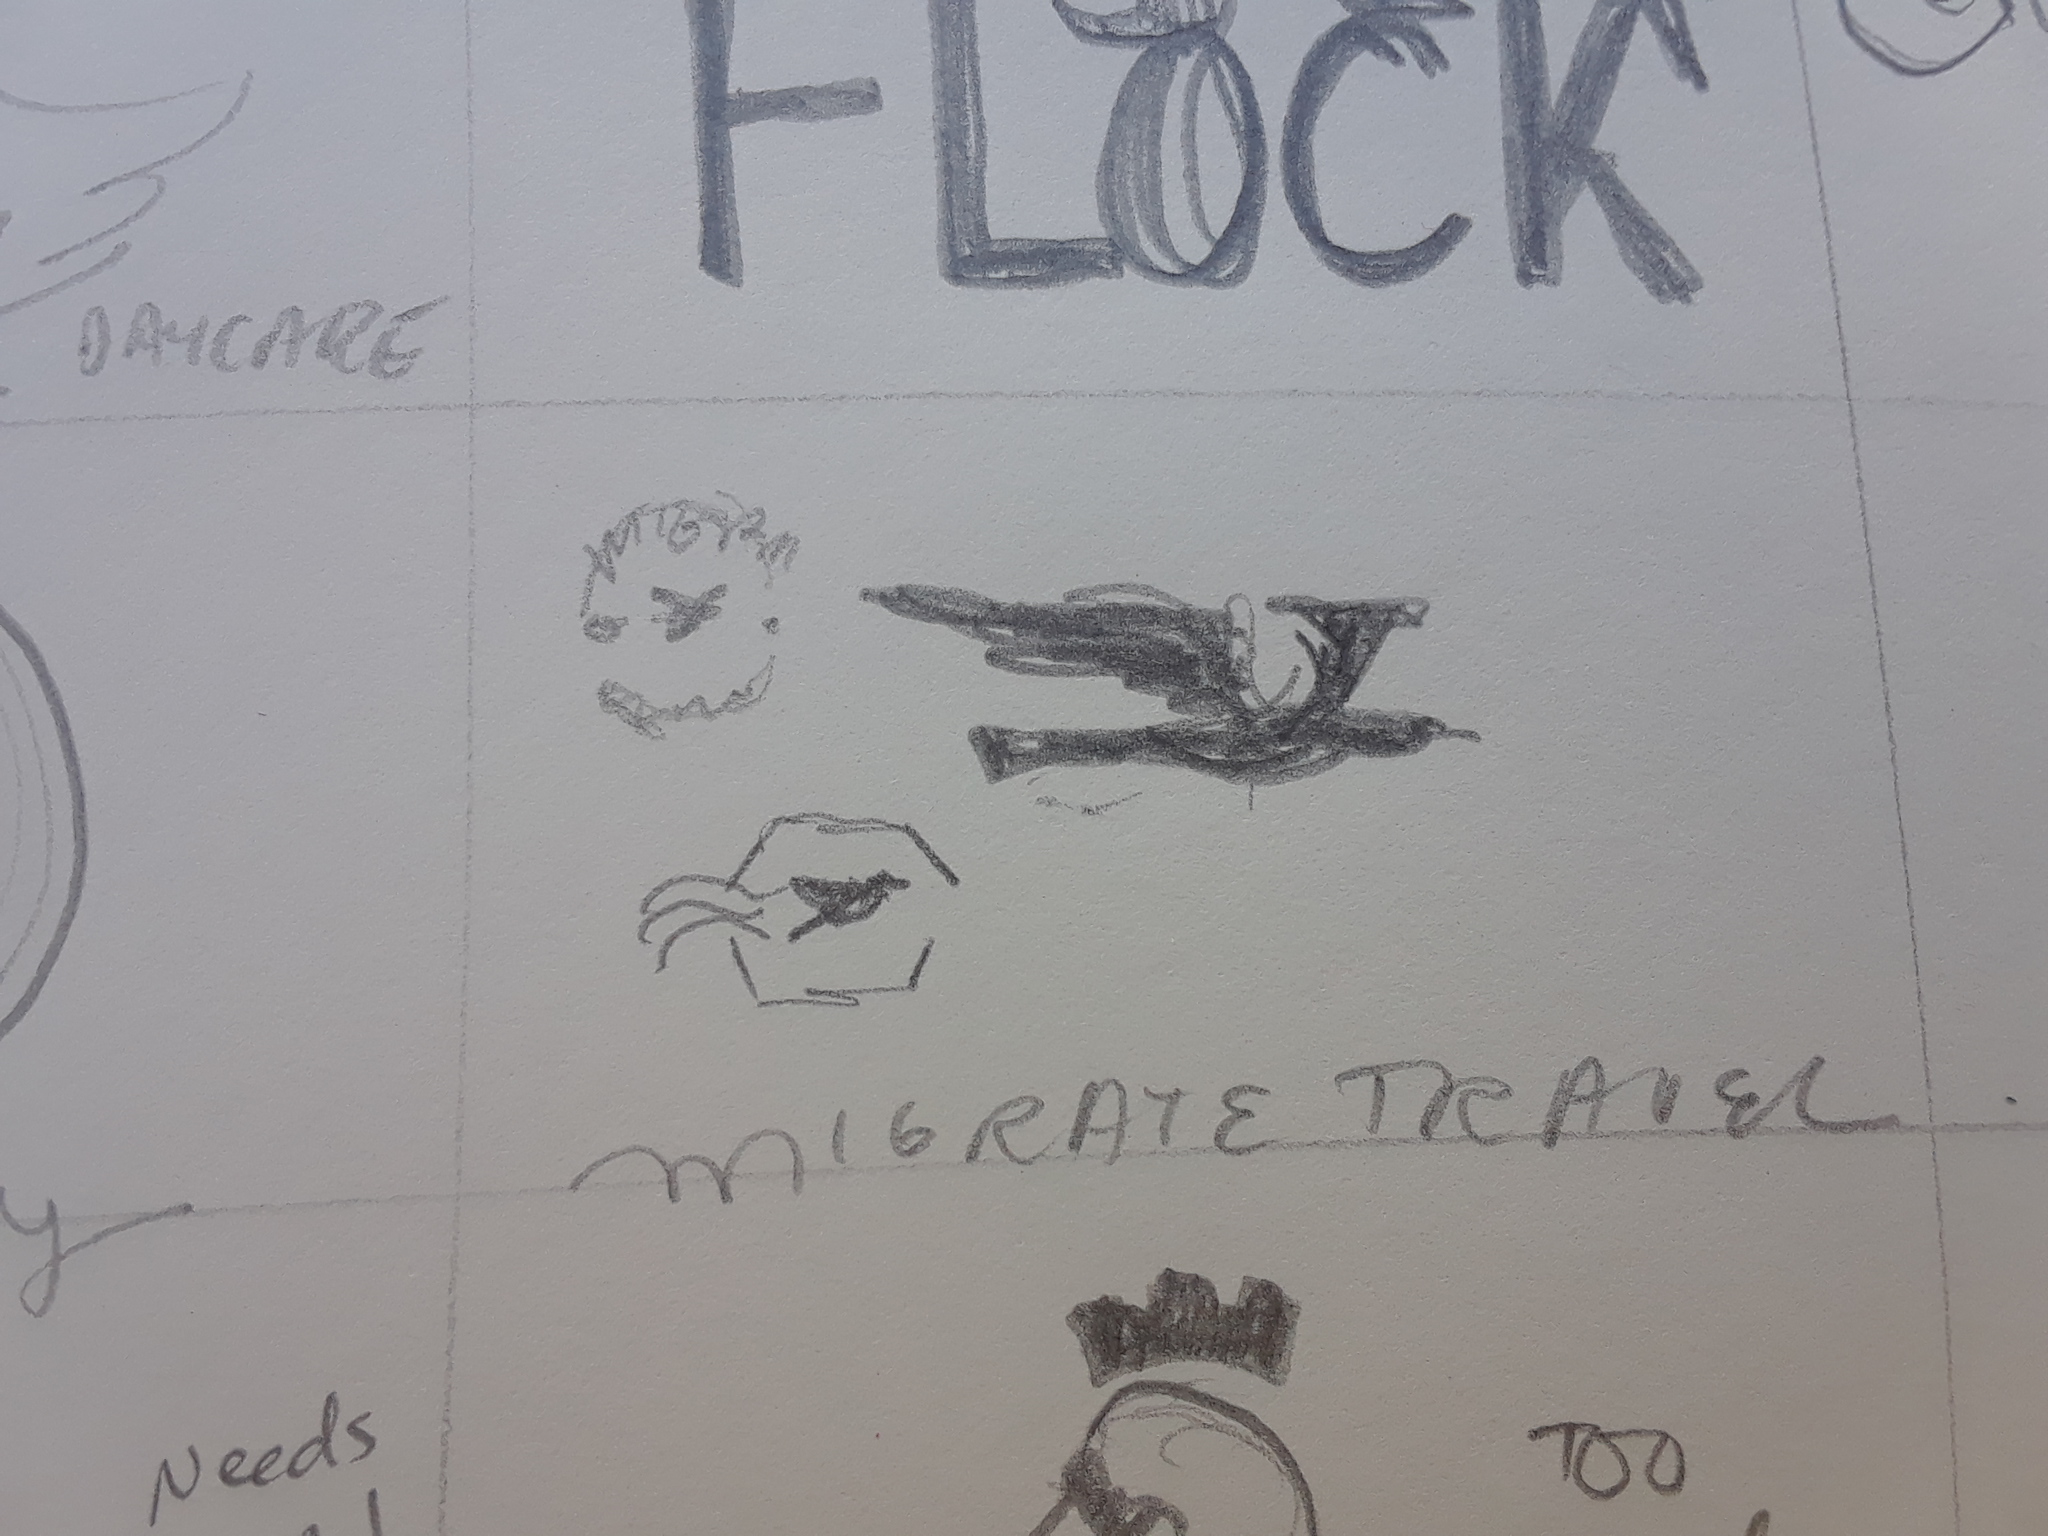 FLOCK
DAYCARE
MIGRATE TRAVEL
Needs
TOO